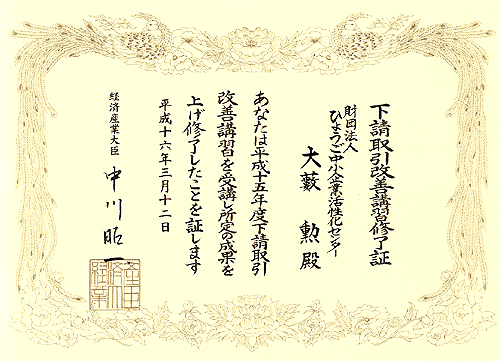 下請取引改善講習修了証
財団法人
ひょうご中小企業活性化センター
大藪 勲 殿
あなたは平成十五年度下請取引
改善講習を受講し所定の成果を
上げ修了したことを証します
平成十六年三月十二日
経済産業大臣 中川昭一